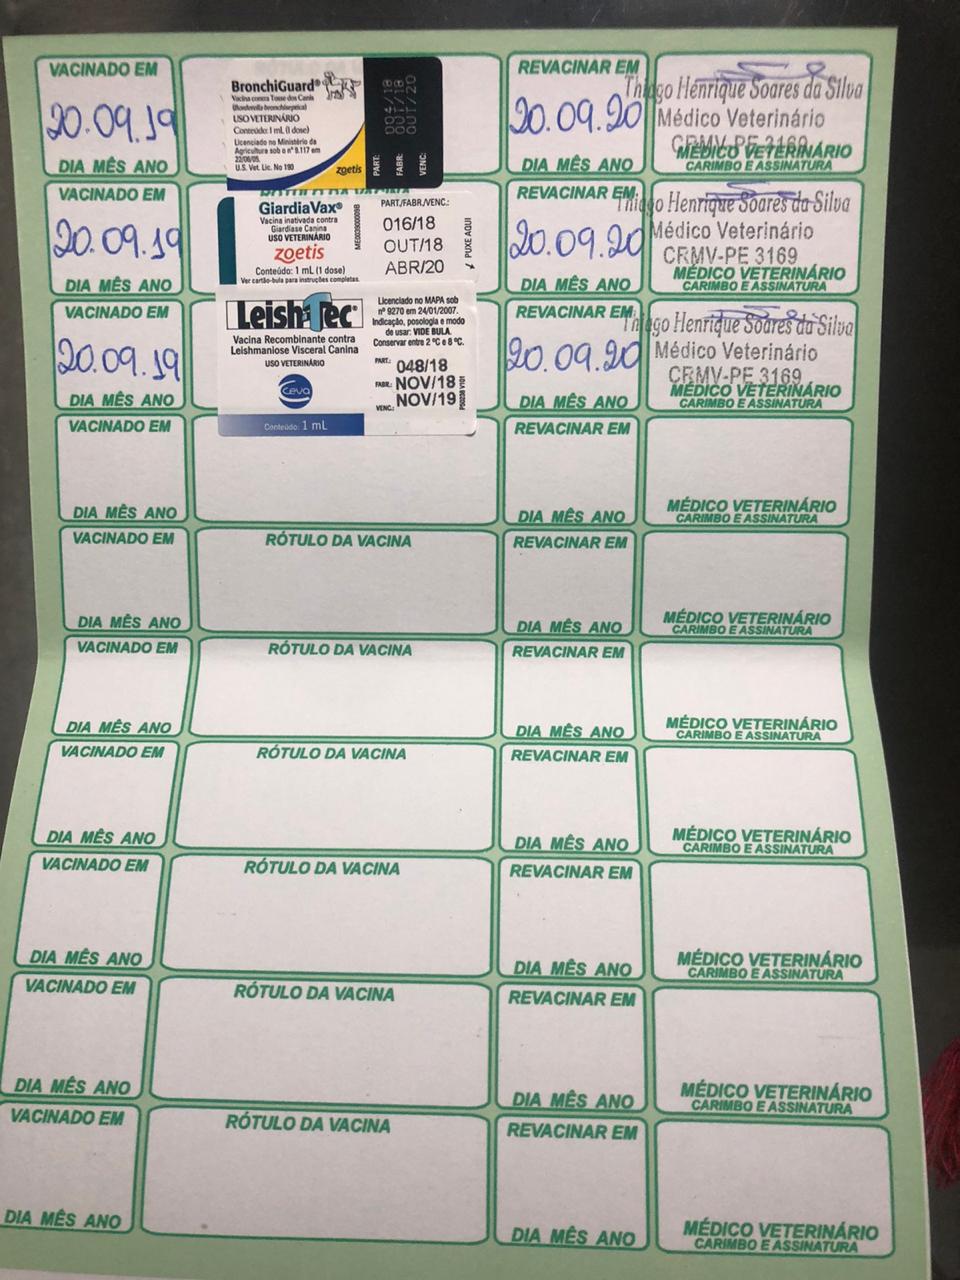 VACINADO EM
20.09.19
DIA MÊS ANO
BronchiGuard®
Vacina contra Tosse dos Canis
(Bordetella bronchiseptica)
USO VETERINÁRIO
Conteúdo: 1 mL (1 dose)
Licenciado no Ministério da
Agricultura sob o nº 9.117 em
22/08/05.
U.S. Vet. Lic. No 190
zoetis
PART:
FABR:
VENC:
004/18
OUT/18
OUT/20
REVACINAR EM
20.09.20
DIA MÊS ANO
Thiago Henrique Soares da Silva
Médico Veterinário
CRMV-PE 3169
MÉDICO VETERINÁRIO
CARIMBO E ASSINATURA
VACINADO EM
20.09.19
DIA MÊS ANO
RÓTULO DA VACINA
GiardiaVax®
Vacina inativada contra
Giardíase Canina
USO VETERINÁRIO
zoetis
Conteúdo: 1 mL (1 dose)
Ver cartão-bula para instruções completas.
PART./FABR./VENC.:
016/18
OUT/18
ABR/20
PUXE AQUI
REVACINAR EM
20.09.20
DIA MÊS ANO
Thiago Henrique Soares da Silva
Médico Veterinário
CRMV-PE 3169
MÉDICO VETERINÁRIO
CARIMBO E ASSINATURA
VACINADO EM
20.09.19
DIA MÊS ANO
LeishTec®
Vacina Recombinante contra
Leishmaniose Visceral Canina
USO VETERINÁRIO
Ceva
Conteúdo: 1 mL
Licenciado no MAPA sob
nº 9270 em 24/01/2007.
Indicação, posologia e modo
de usar: VIDE BULA.
Conservar entre 2 ºC e 8 ºC.
PART.: 048/18
FABR.: NOV/18
VENC.: NOV/19
REVACINAR EM
20.09.20
DIA MÊS ANO
Thiago Henrique Soares da Silva
Médico Veterinário
CRMV-PE 3169
MÉDICO VETERINÁRIO
CARIMBO E ASSINATURA
VACINADO EM
DIA MÊS ANO
REVACINAR EM
DIA MÊS ANO
MÉDICO VETERINÁRIO
CARIMBO E ASSINATURA
VACINADO EM
DIA MÊS ANO
RÓTULO DA VACINA
REVACINAR EM
DIA MÊS ANO
MÉDICO VETERINÁRIO
CARIMBO E ASSINATURA
VACINADO EM
DIA MÊS ANO
RÓTULO DA VACINA
REVACINAR EM
DIA MÊS ANO
MÉDICO VETERINÁRIO
CARIMBO E ASSINATURA
VACINADO EM
DIA MÊS ANO
RÓTULO DA VACINA
REVACINAR EM
DIA MÊS ANO
MÉDICO VETERINÁRIO
CARIMBO E ASSINATURA
VACINADO EM
DIA MÊS ANO
RÓTULO DA VACINA
REVACINAR EM
DIA MÊS ANO
MÉDICO VETERINÁRIO
CARIMBO E ASSINATURA
VACINADO EM
DIA MÊS ANO
RÓTULO DA VACINA
REVACINAR EM
DIA MÊS ANO
MÉDICO VETERINÁRIO
CARIMBO E ASSINATURA
VACINADO EM
DIA MÊS ANO
RÓTULO DA VACINA
REVACINAR EM
DIA MÊS ANO
MÉDICO VETERINÁRIO
CARIMBO E ASSINATURA